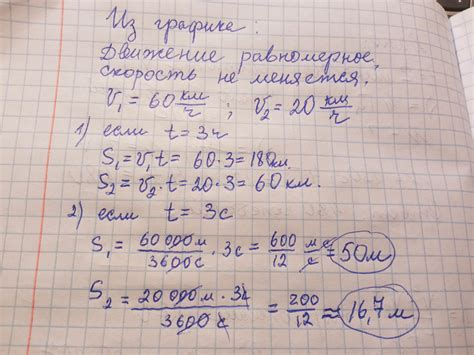 Из графика:
Движение равномерное,
скорость не меняется.
V₁ = 60 км/ч ; V₂ = 20 км/ч
1) если t = 3ч
S₁ = V₁t = 60·3 = 180 км.
S₂ = V₂·t = 20·3 = 60 км.
2) если t = 3с
S₁ = 60 000 м / 3600 с · 3с = 600 / 12 м·с / с = 50м
S₂ = 20 000 м · 3с / 3600 с = 200 / 12 ≈ 16,7 м